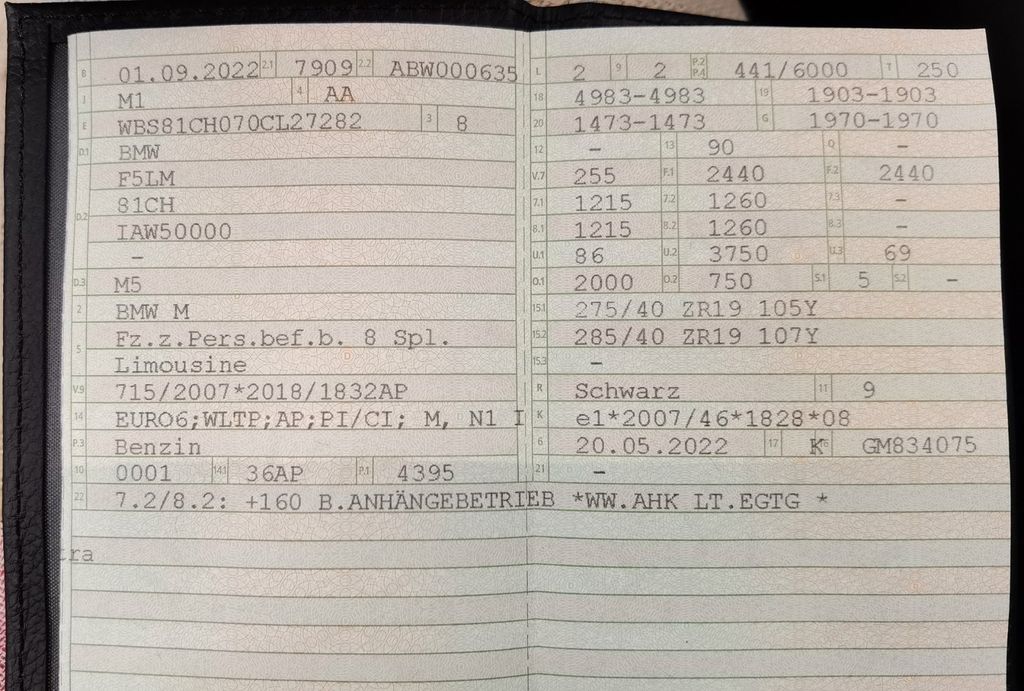 B 01.09.2022 2.1 7909 2.2 ABW000635
J M1 4 AA
E WBS81CH070CL27282 3 8
D.1 BMW
F5LM
81CH
D.2 IAW50000
-
D.3 M5
2 BMW M
5 Fz.z.Pers.bef.b. 8 Spl.
Limousine
V.9 715/2007*2018/1832AP
14 EURO6;WLTP;AP;PI/CI; M, N1 I
P.3 Benzin
10 0001 14.1 36AP P.1 4395
L 2 9 2 P.2 P.4 441/6000 T 250
18 4983-4983 19 1903-1903
20 1473-1473 G 1970-1970
12 - 13 90 Q -
V.7 255 F.1 2440 F.2 2440
7.1 1215 7.2 1260 7.3 -
8.1 1215 8.2 1260 8.3 -
U.1 86 U.2 3750 U.3 69
O.1 2000 O.2 750 S.1 5 S.2 -
15.1 275/40 ZR19 105Y
15.2 285/40 ZR19 107Y
15.3 -
R Schwarz 11 9
K e1*2007/46*1828*08
6 20.05.2022 17 K 16 GM834075
21 -
22 7.2/8.2: +160 B.ANHÄNGEBETRIEB *WW.AHK LT.EGTG *
tra